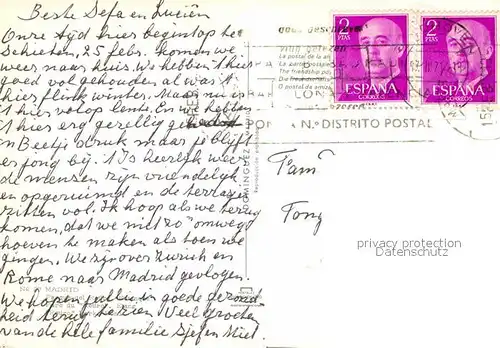 Beste Sefa en Lucien
Onze tijd hier begint op te
schieten, 25 febr. komen we
weer naar huis. We hebben 't hier
goed vol gehouden al was 't
hier flink winter. Maar nu is
't hier volop lente. En we hebben
't hier erg gezellig gehad
een Beetje druk maar je blijft
er jong bij. 't Is heerlijk weer
de mensen zijn vriendelijk
en opgeruimd en de terrasjes
zitten vol. Ik hoop als we terug
komen, dat we niet zo'n omweg
hoeven te maken als toen we
gingen. We zijn over Zurich en
Rome naar Madrid gevlogen.
We hopen jullie in goede gezond
heid terug te zien. Veel groeten
van de hele familie Sjef en Miet
MADRID
DOMINGUEZ
2
PTAS
ESPAÑA
CORREOS
2
PTAS
ESPAÑA
CORREOS
La postal de la
The friendship
O postal da amizade
N.º DISTRITO POSTAL
Fam
Tong
privacy protection
Datenschutz